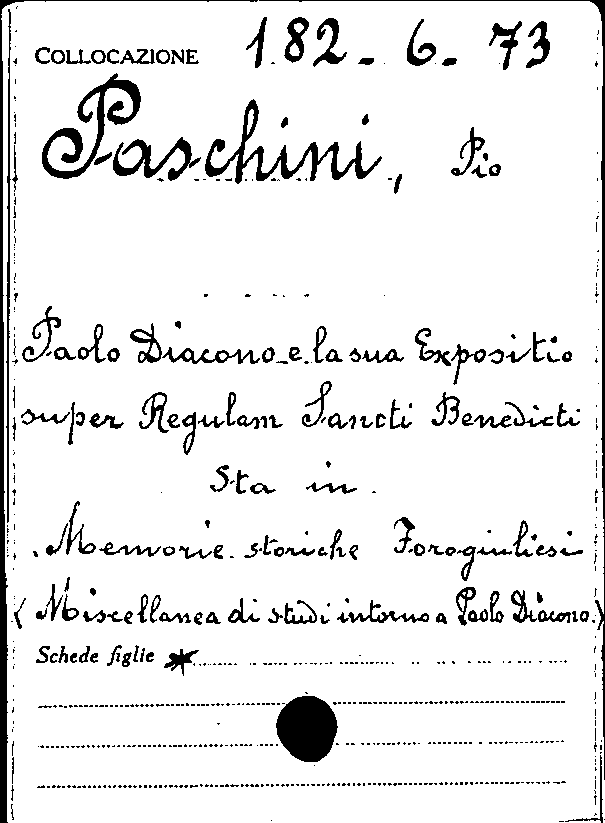 COLLOCAZIONE 182-6-73
Paschini, Pio
Paolo Diacono e la sua Expositio
super Regulam Sancti Benedicti
Sta in
Memorie storiche Forogiuliesi
(Miscellanea di studi intorno a Paolo Diacono.)
Schede figlie *